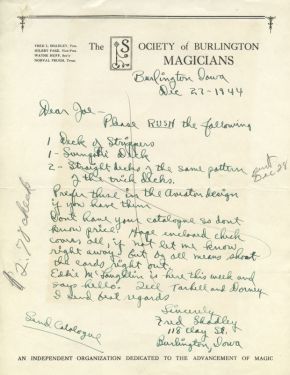 FRED L. SHADLEY, Pres.
NORVAL PRUGH, Treas.
The SOCIETY OF BURLINGTON
MAGICIANS
Burlington Iowa
Dec 27-1944
Dear Joe -
Please RUSH the following
1 Deck of Strippers
1 - Svengali Deck
2 - Straight decks of the same pattern
of the trick decks.
Prefer these in the Aviator design
if you have them
Dont have your catalogue so dont
know price. Hope enclosed check
covers all, if not let me know
right away but by all means shoot
the cards right out.
Eddie McLaughlin is here this week and
says hello. Tell Tarbell and Dorney
I send best regards
Sincerely
Fred Shadley
118 Clay St.
Burlington, Iowa
Send Catalogue
sent
Dec 29
check
AN INDEPENDENT ORGANIZATION DEDICATED TO THE ADVANCEMENT OF MAGIC